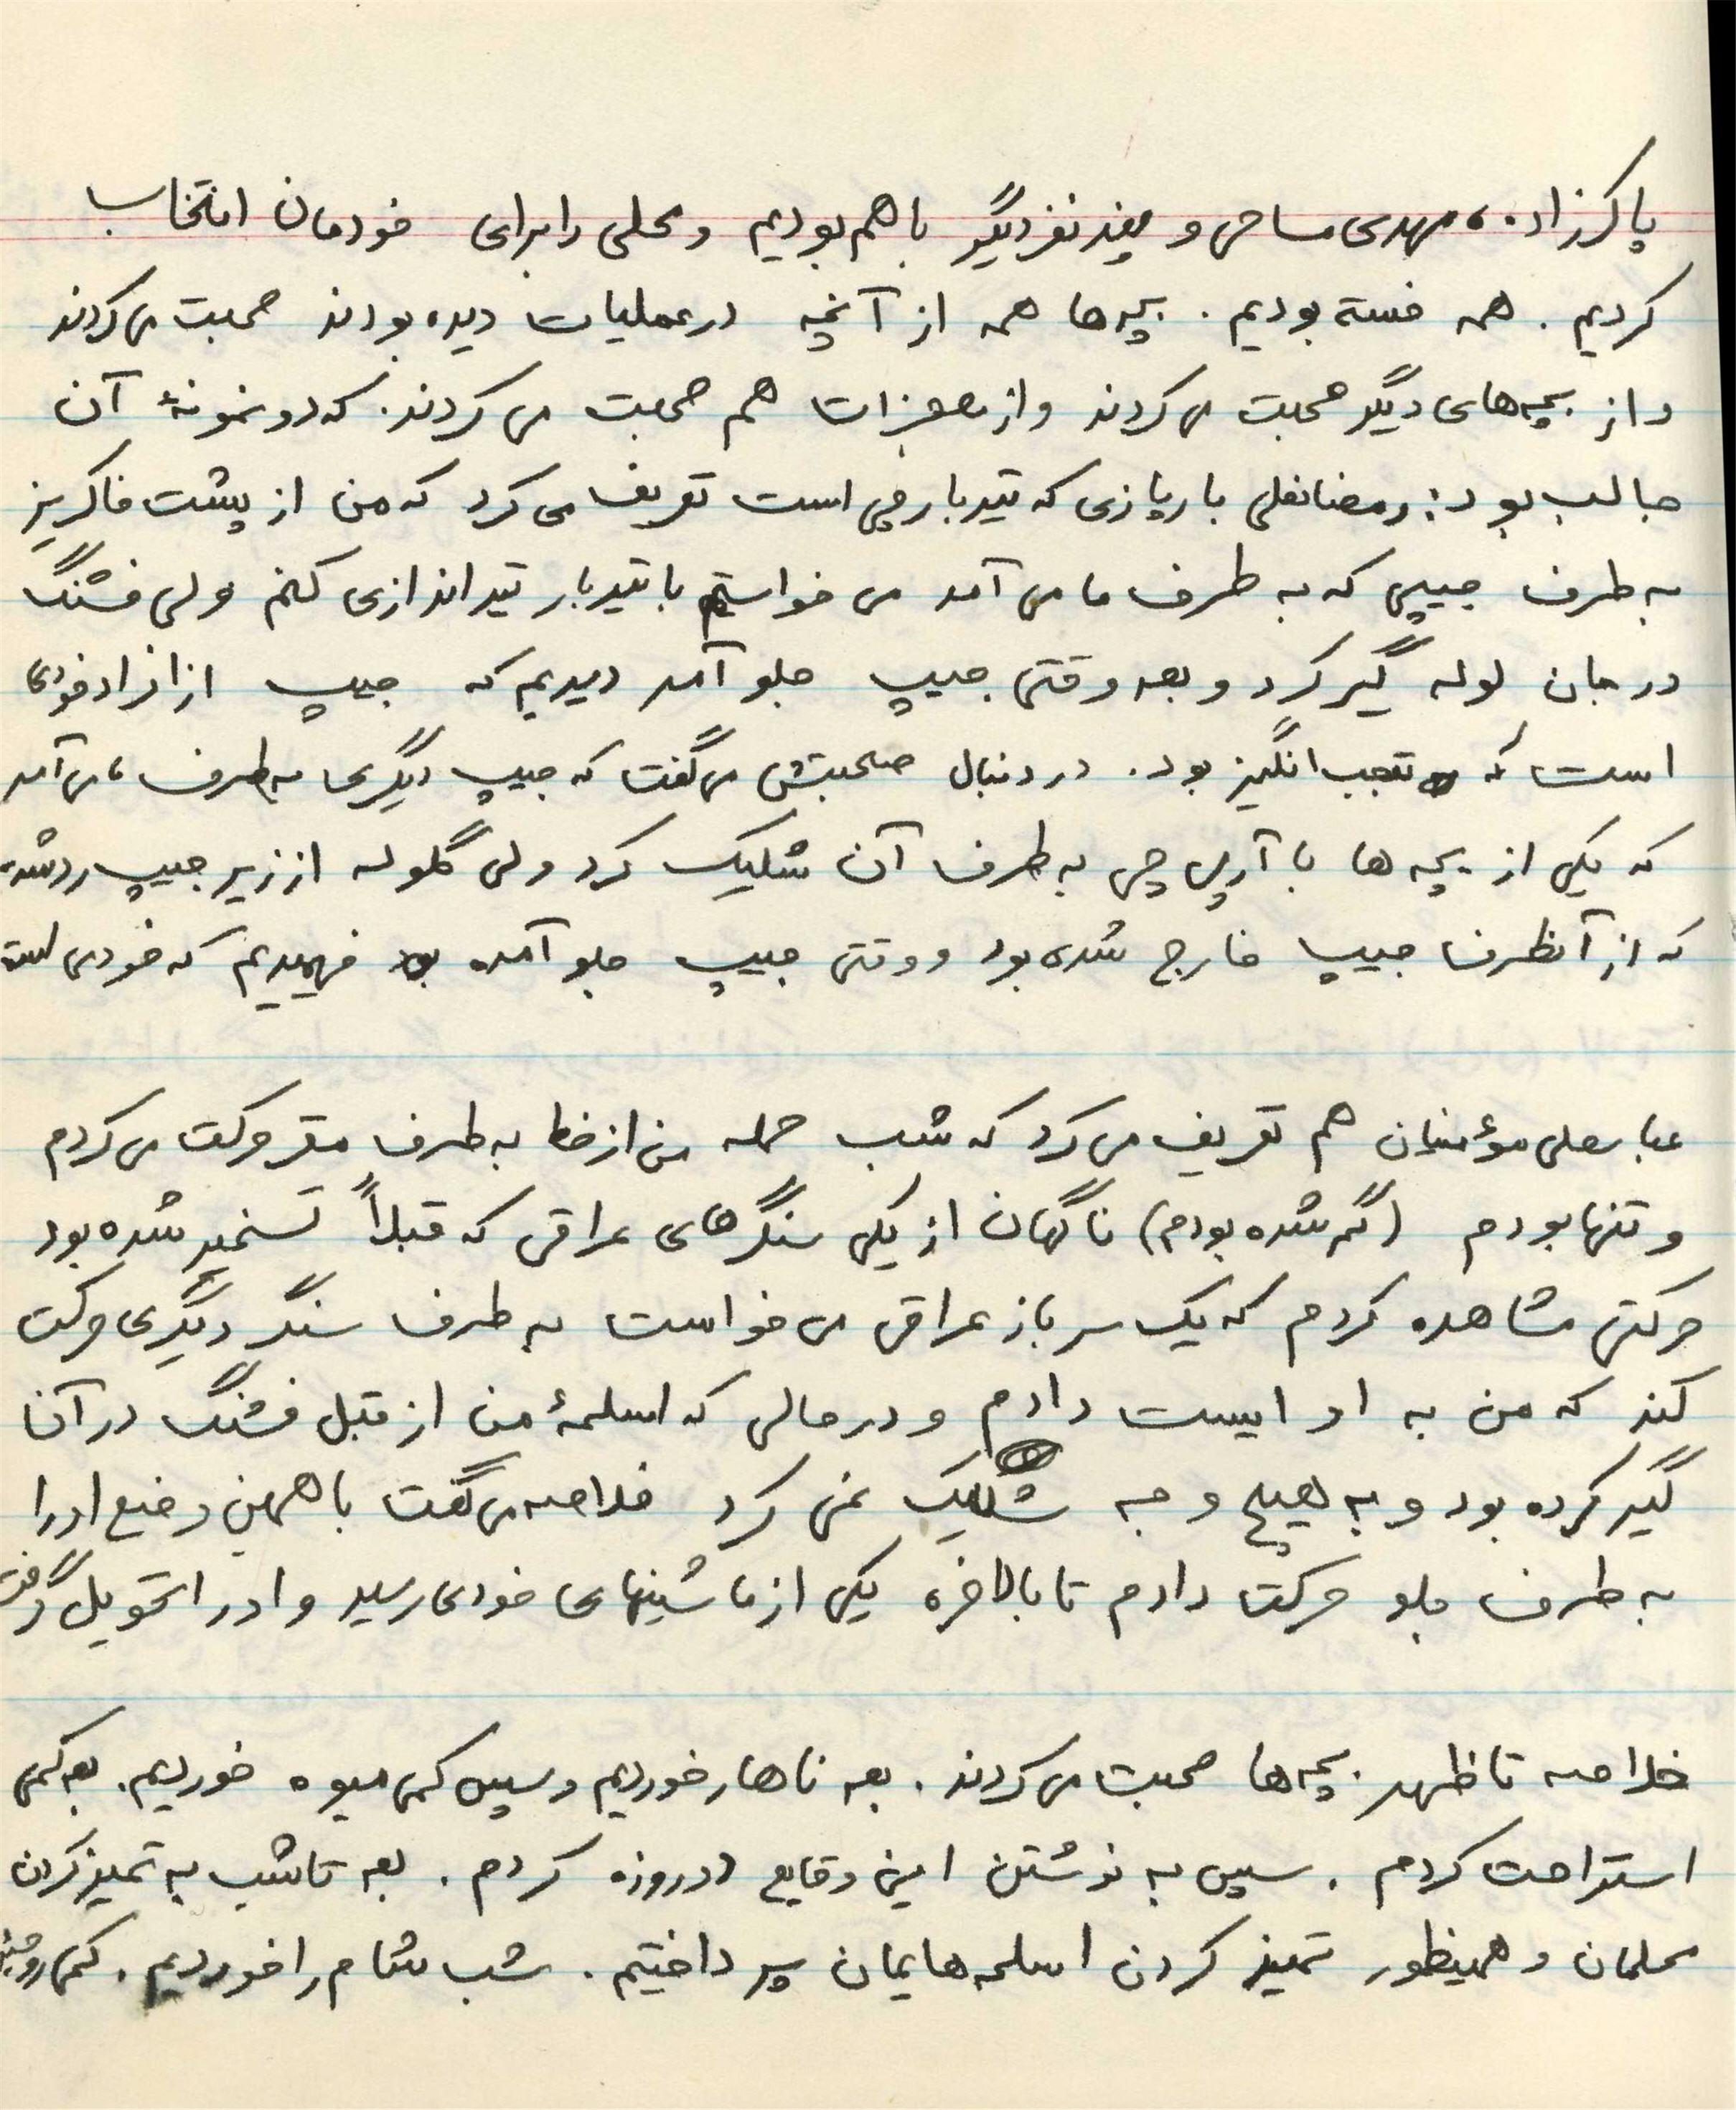 پاکزاد، مهدی مساحی و چند نفر دیگر باهم بودیم و محلی را برای خودمان انتخاب
کردیم. همه خسته بودیم. بچه‌ها همه از آنچه در عملیات دیده بودند صحبت می‌کردند
و از بچه‌های دیگر صحبت می‌کردند و از معجزات هم صحبت می‌کردند. که دو نمونهٔ آن
جالب بود: رمضانعلی که تیربارچی است تعریف می‌کرد که من از پشت خاکریز
به طرف جیپی که به طرف ما می‌آمد می‌خواستم با تیربار تیراندازی کنم ولی فشنگ
در جان لوله گیر کرد و بعد وقتی جیپ جلو آمد دیدیم که جیپ از افراد خودی
است که تعجب‌انگیز بود. در دنبال صحبتش می‌گفت که جیپ دیگری به طرف ما می‌آمد
که یکی از بچه‌ها با آرپی‌چی به طرف آن شلیک کرد ولی گلوله از زیر جیپ رد شده
که از آنطرف جیپ خارج شدی بود و وقتی جیپ جلو آمده بود فهمیدیم که خودی است
عباسعلی مؤمنیان هم تعریف می‌کرد که شب حمله من از خط به طرف مقر حرکت می‌کردم
و تنها بودم (گم شده بودم) ناگهان از یکی سنگرهای عراقی که قبلاً تسخیر شده بود
حرکتی مشاهده کردم که یک سرباز عراقی می‌خواست به طرف سنگر دیگری حرکت
کند که من به او ایست دادم و در حالی که اسلحهٔ من از قبل فشنگ در آن
گیر کرده بود و به هیچ وجه شلیک نمی‌کرد خلاصه می‌گفت با همین وضع او را
به طرف جلو حرکت دادم تا بالاخره یکی از ماشینهای خودی رسید و او را تحویل گرفت
خلاصه تا ظهر بچه‌ها صحبت می‌کردند. بعد ناهار خوردیم و سپس کمی میوه خوردیم. بعد کمی
استراحت کردم. سپس به نوشتن این وقایع دو روزه کردم. بعد تا شب به تمیز کردن
محلمان و همینطور تمیز کردن اسلحه‌هایمان پرداختیم. شب شام را خوردیم. کمی